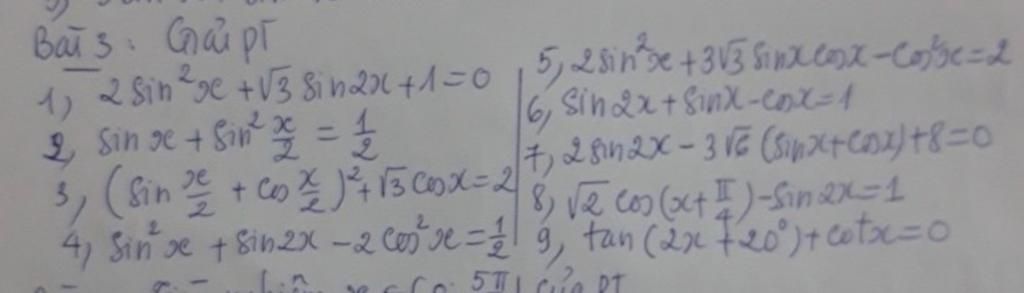 Bài 3: Giải pt
1, 2sin²x + √3 sin2x + 1 = 0
2, sin x + sin² x/2 = 1/2
3, (sin x/2 + cos x/2)² + √3 cosx = 2
4, sin²x + sin2x - 2cos²x = 1/2
5, 2sin²x + 3√3 sinx cosx - cos²x = 2
6, sin2x + sinx - cosx = 1
7, 2sin2x - 3√6 (sinx + cosx) + 8 = 0
8, √2 cos(x + π/4) - sin2x = 1
9, tan(2x + 20°) + cotx = 0
5π của PT